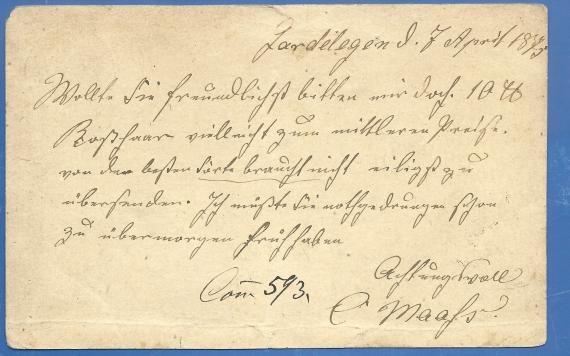 Gardelegen d. 7 April 18
Wollte Sie freundlichst bitten mir doch 10 ℔
Roßhaar vielleicht zum mittleren Preise.
von der besten Sorte braucht nicht eiligst zu
übersenden. Ich müßte sie nothgedrungen schon
zu übermorgen früh haben
Achtungsvoll
Com 593.
C Maaß.